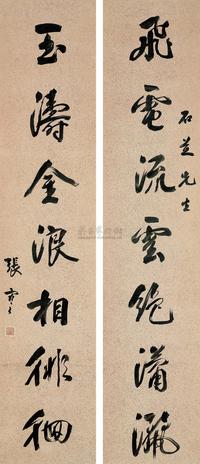 飛電流雲絕瀟灑
石芝先生
玉濤金浪相徘徊
張謇